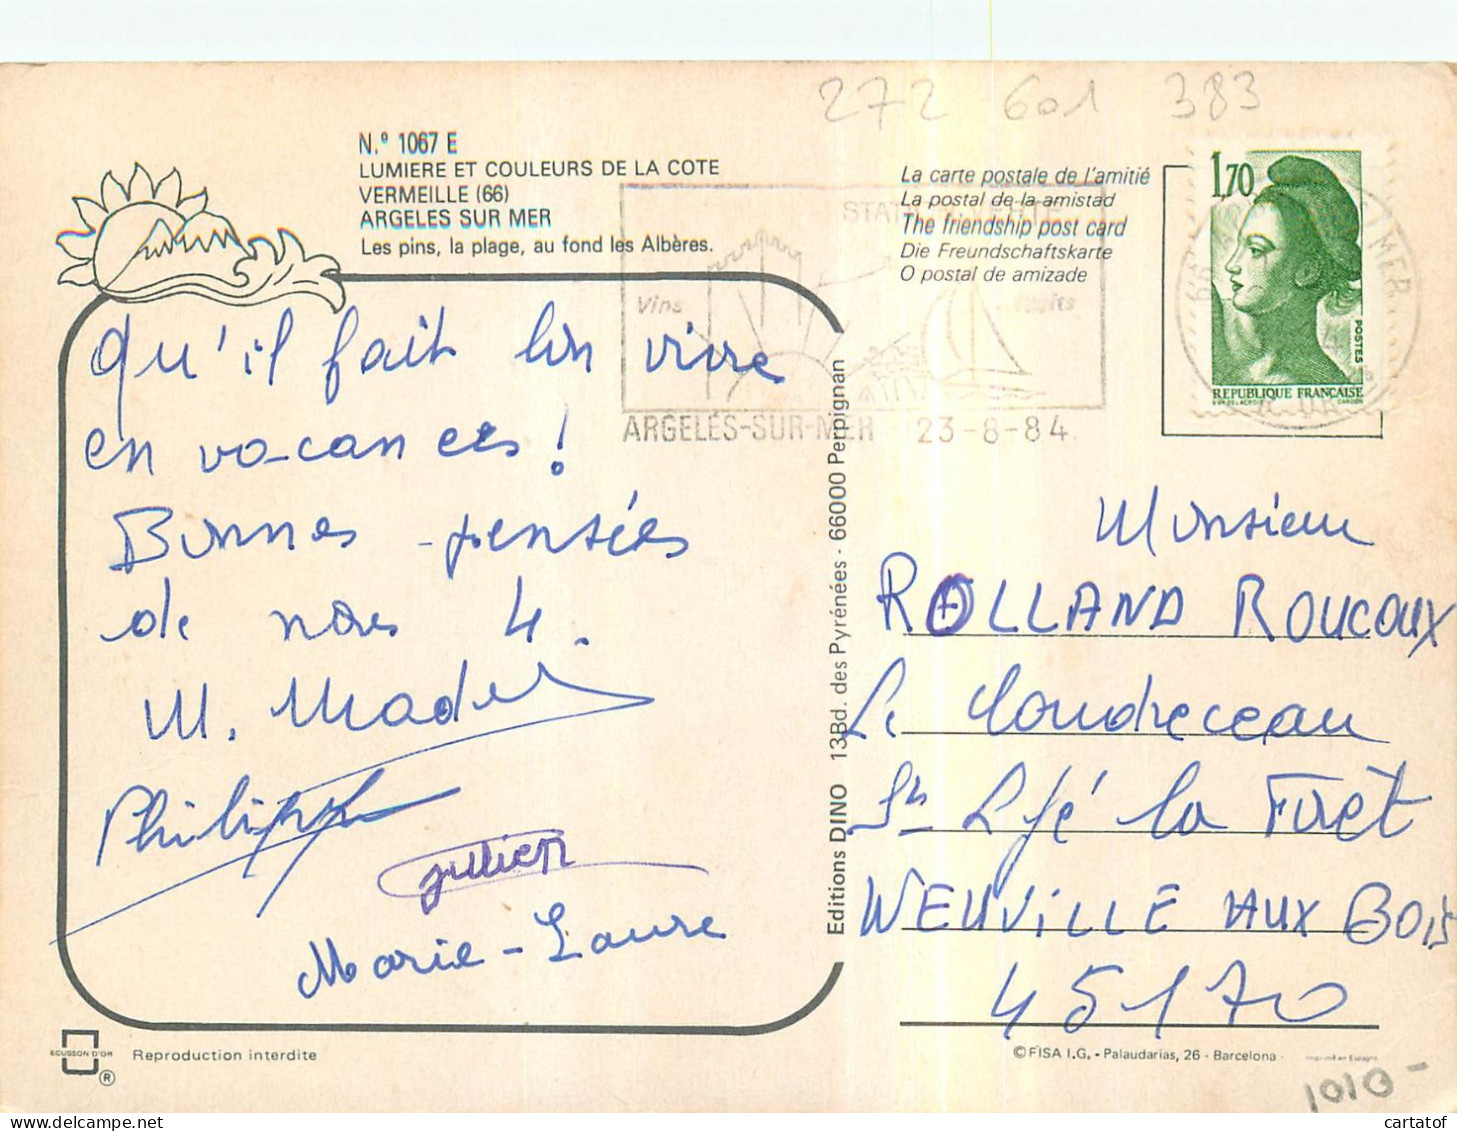 272 601 383
N.º 1067 E
LUMIERE ET COULEURS DE LA COTE
VERMEILLE (66)
ARGELES SUR MER
Les pins, la plage, au fond les Albères.
La carte postale de l'amitié
La postal de la amistad
The friendship post card
Die Freundschaftskarte
O postal de amizade
Vins
ARGELÈS-SUR-MER 23-8-84
1,70
POSTES
REPUBLIQUE FRANÇAISE
66
S MER
Qu'il fait bon vivre
en vacances !
Bonnes pensées
de nous 4.
M. Made
Philippe
Julien
Marie-Laure
Editions DINO 13Bd. des Pyrénées - 66000 Perpignan
Monsieur
ROLLAND ROUCOUX
Le Coudreceau
St Lyé la Forêt
NEUVILLE AUX BOIS
45170
ECUSSON D'OR
®
Reproduction interdite
© FISA I.G. - Palaudarias, 26 - Barcelona
1010-
cartatof